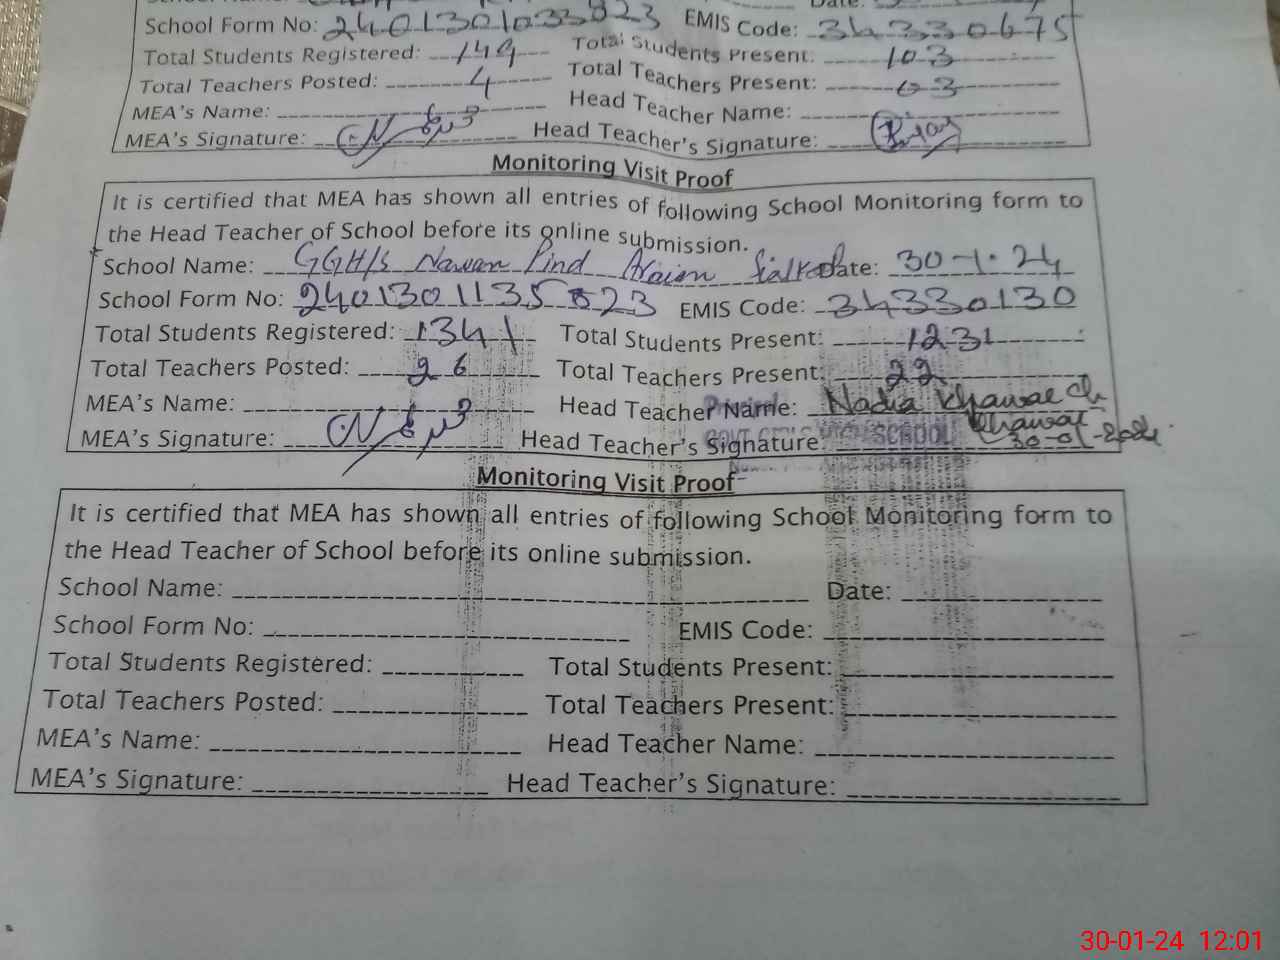 Date:
School Form No: 2401301033823 EMIS Code: 34330675
Total Students Registered: 149 Total Students Present: 103
Total Teachers Posted: 4 Total Teachers Present: 03
MEA's Name: Head Teacher Name:
MEA's Signature: Head Teacher's Signature:
Monitoring Visit Proof
It is certified that MEA has shown all entries of following School Monitoring form to
the Head Teacher of School before its online submission.
School Name: GGH/S Nawan Pind Araian Sialkot Date: 30-1-24
School Form No: 2401301135823 EMIS Code: 34330130
Total Students Registered: 1341 Total Students Present: 1231
Total Teachers Posted: 26 Total Teachers Present: 22
MEA's Name: Head Teacher Name: Nadia Khawar Ch
MEA's Signature: Head Teacher's Signature: Khawar
SCHOOL 30-01-2024
Monitoring Visit Proof
It is certified that MEA has shown all entries of following School Monitoring form to
the Head Teacher of School before its online submission.
School Name: Date:
School Form No: EMIS Code:
Total Students Registered: Total Students Present:
Total Teachers Posted: Total Teachers Present:
MEA's Name: Head Teacher Name:
MEA's Signature: Head Teacher's Signature:
30-01-24 12:01